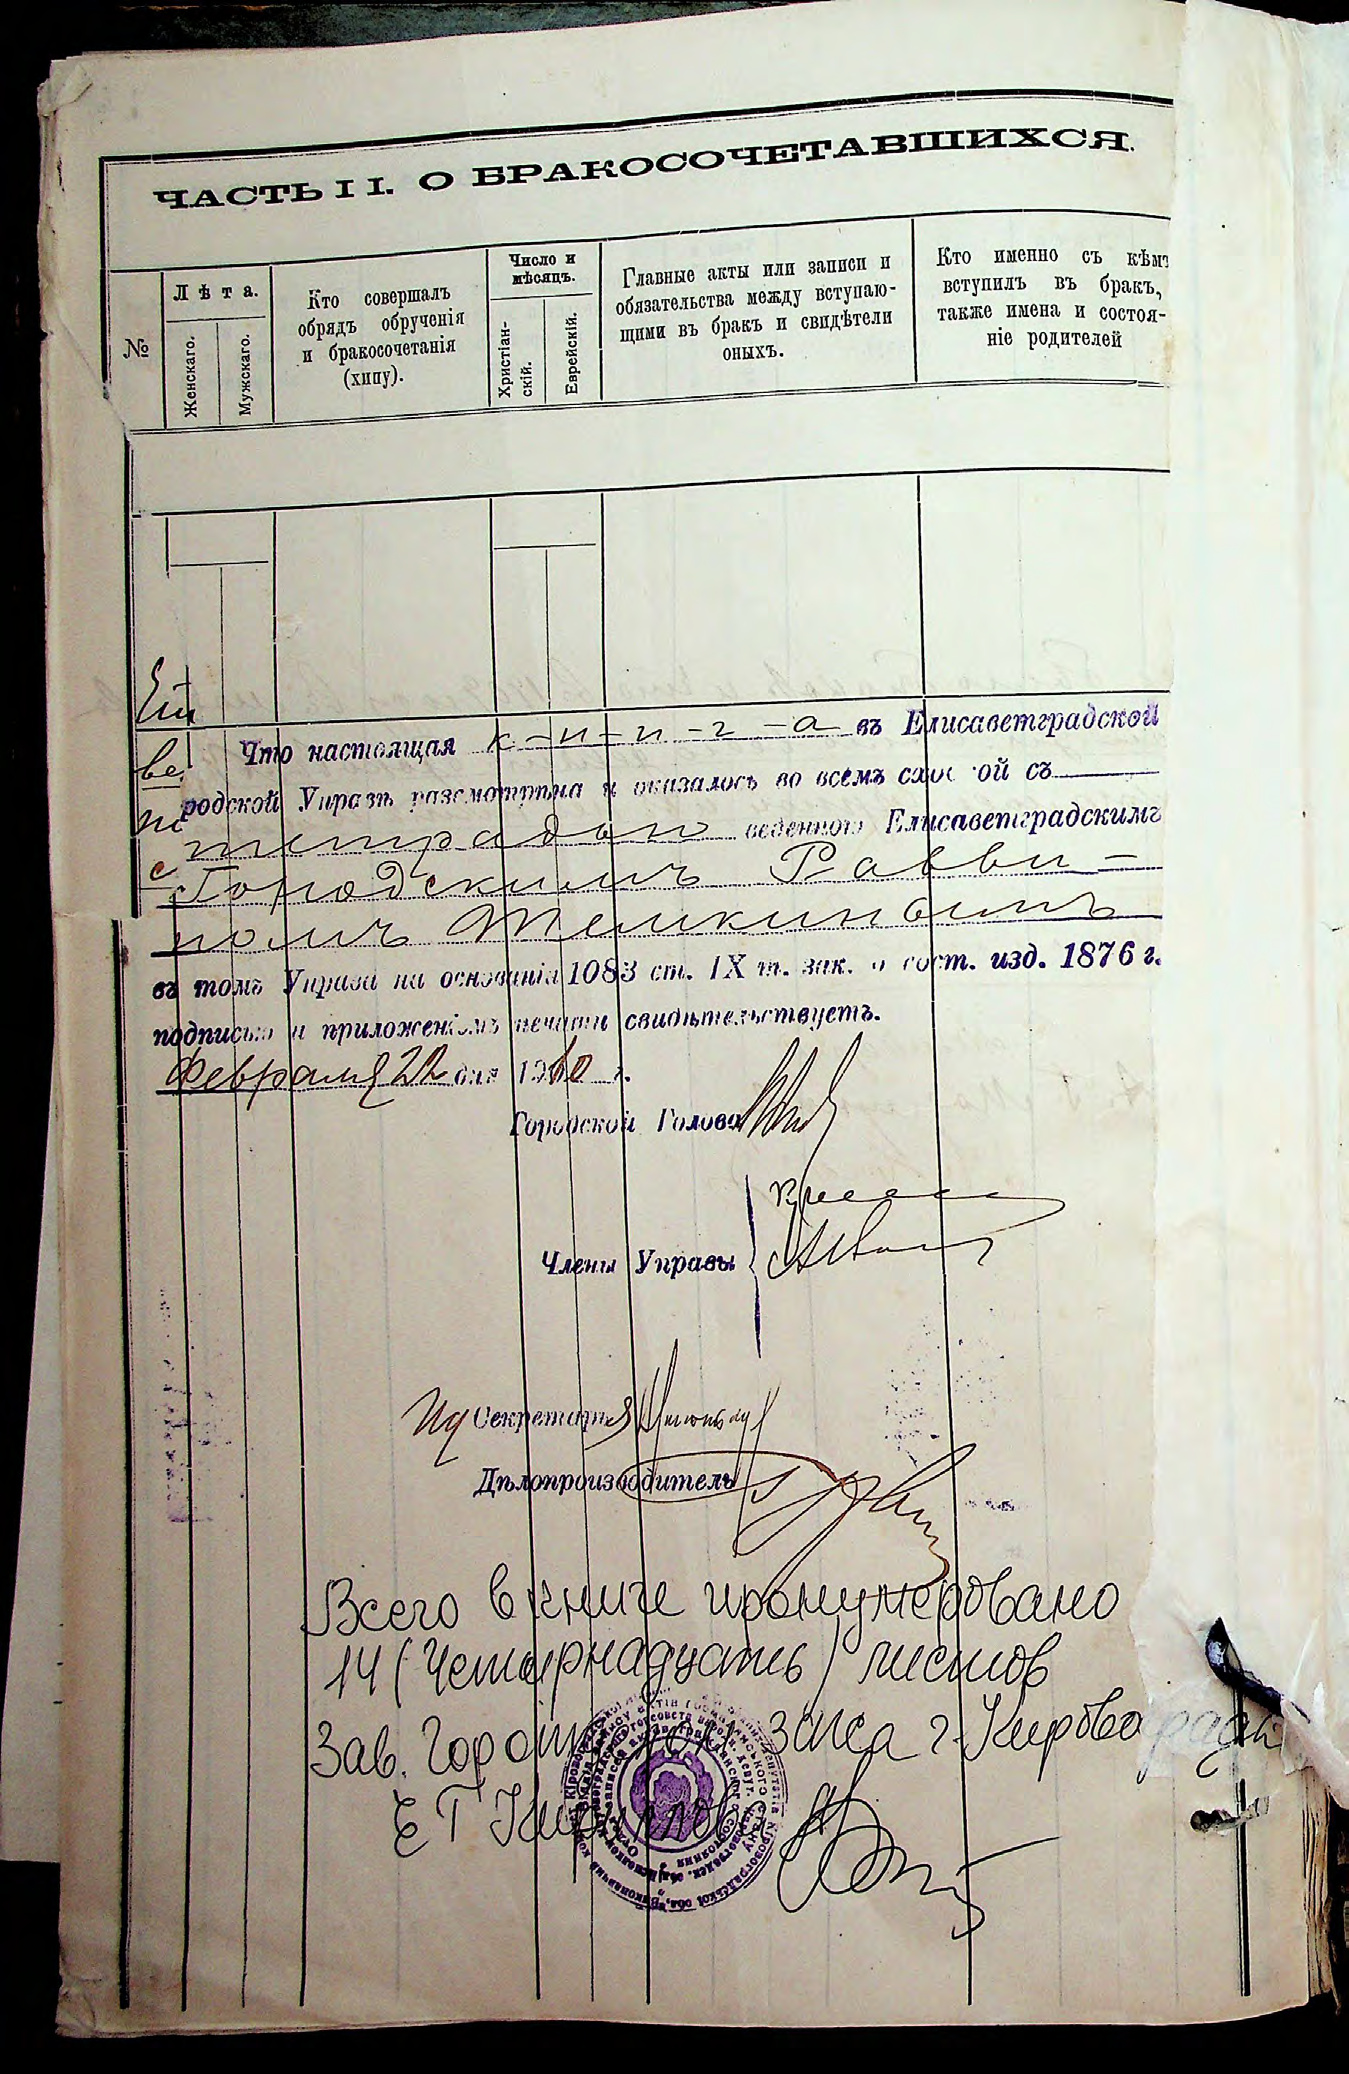 ЧАСТЬ II. О БРАКОСОЧЕТАВШИХСЯ.
№
Лѣта.
Женскаго.
Мужскаго.
Кто совершалъ
обрядъ обрученія
и бракосочетанія
(хипу).
Число и
мѣсяцъ.
Христіан-
скій.
Еврейскій.
Главные акты или записи и
обязательства между вступаю-
щими въ бракъ и свидѣтели
оныхъ.
Кто именно съ кѣмъ
вступилъ въ бракъ,
также имена и состоя-
ніе родителей
Что настоящая к-н-и-г-а въ Елисаветградской
родской Управѣ разсмотрѣна и оказалось во всемъ сход ной съ
тетрадью веденною Елисаветградскимъ
Городскимъ Равви-
номъ Темкинымъ
въ томъ Управа на основаніи 1083 ст. IX т. зак. о сост. изд. 1876 г.
подписью и приложеніемъ печати свидѣтельствуетъ.
Февраля 22 дня 1910 г.
Городской Голова
Члены Управы
Ид Секретаря
Дѣлопроизводитель
Всего в книге пронумеровано
14 (Четырнадцать) листов
Зав. Гор ЗАГСа г. Кировограда